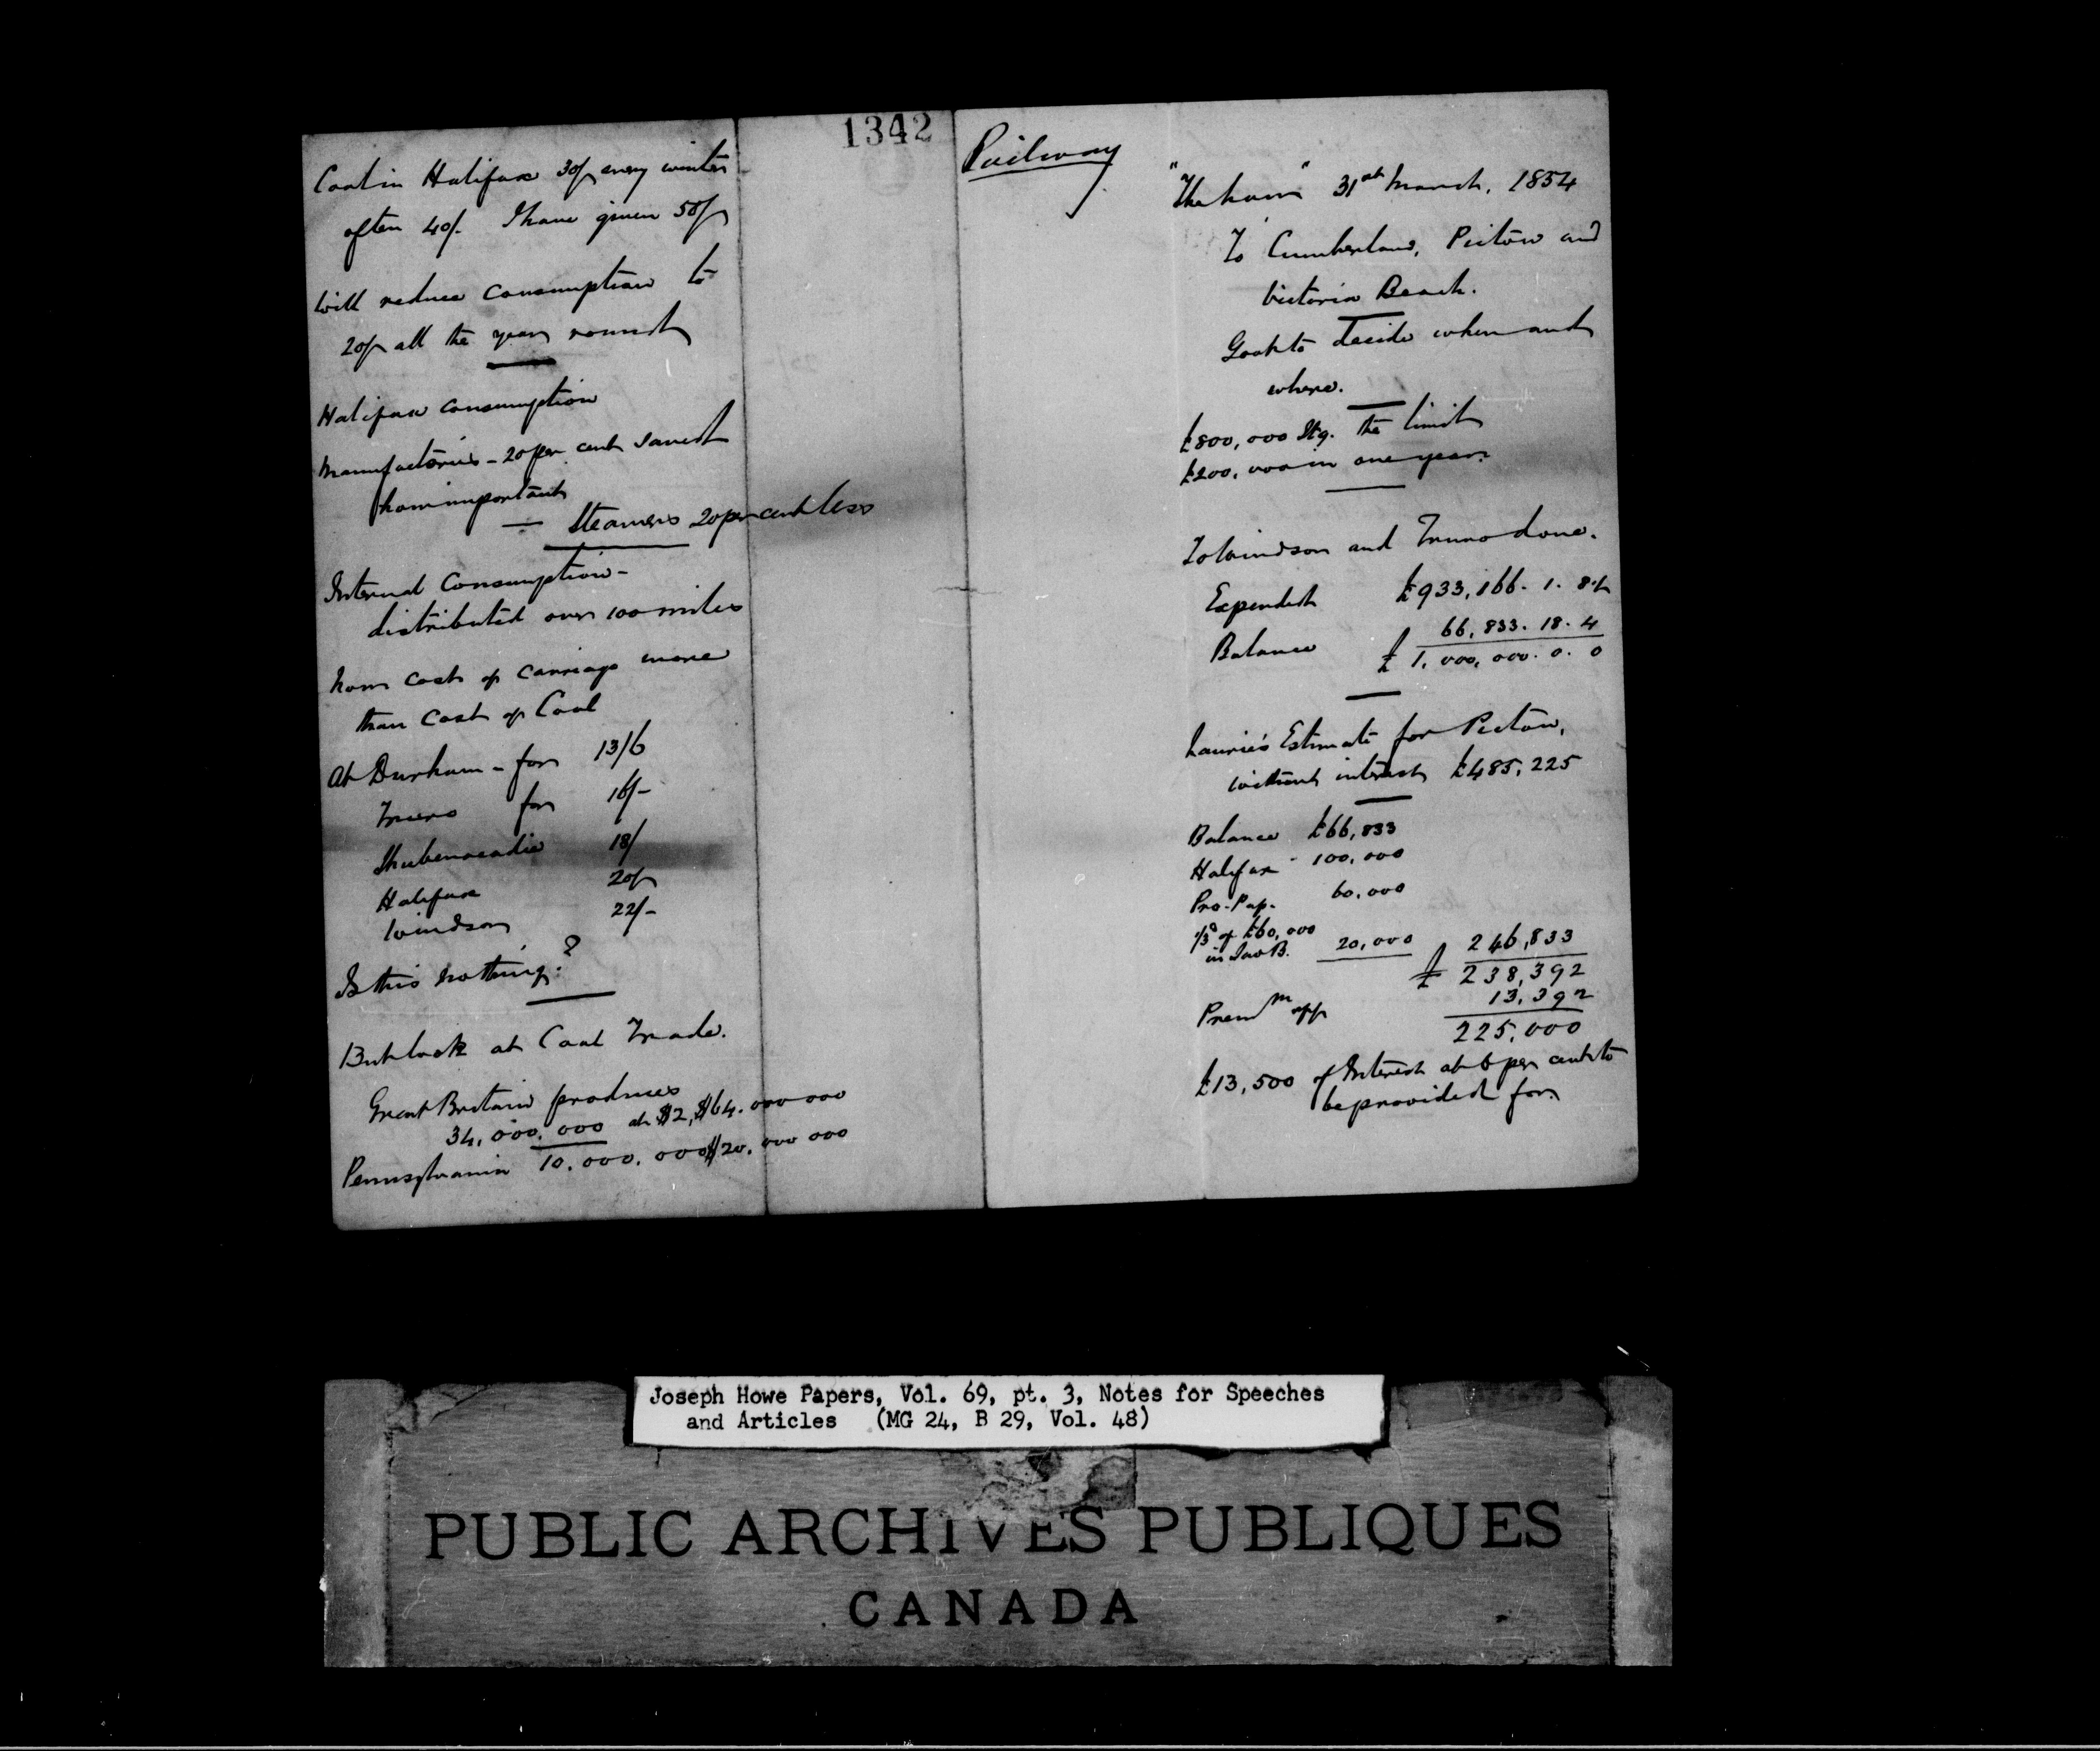 1342
Coal in Halifax 30/ every winter
often 40/. I have given 50/
Will reduce consumption to
20/ all the year round
Halifax consumption
Manufactories - 20 per cent saved
how important
— Steamers 20 per cent less
Internal Consumption -
distributed over 100 miles
now cost of carriage more
than cost of Coal
At Durham - for 13/6
Truro for 16/-
Shubenacadie 18/
Halifax 20/
Windsor 22/-
Is this nothing?
But look at Coal Trade.
Great Britain produces
34,000,000 at $2, $64.000 000
Pennsylvania 10.000.000 $20.000 000
Railway
"The Law" 31st March, 1854
To Cumberland, Pictou and
Victoria Beach.
Govt to decide when and
where.
£800,000 Stg. the limit
£200,000 in one year.
To Windsor and Truro done.
Expended £933,166. 1. 8
Balance 66,833. 18. 4
£ 1,000,000. 0. 0
Laurie's Estimate for Pictou,
without interest £485,225
Balance £66,833
Halifax 100,000
Pro. Pap. 60,000
1/3d of £60,000
in Sav B. 20,000 246,833
£ 238,392
Premm 13,392
225,000
£13,500 of Interest at 6 per cent to
be provided for.
Joseph Howe Papers, Vol. 69, pt. 3, Notes for Speeches
and Articles (MG 24, B 29, Vol. 48)
PUBLIC ARCHIVES PUBLIQUES
CANADA